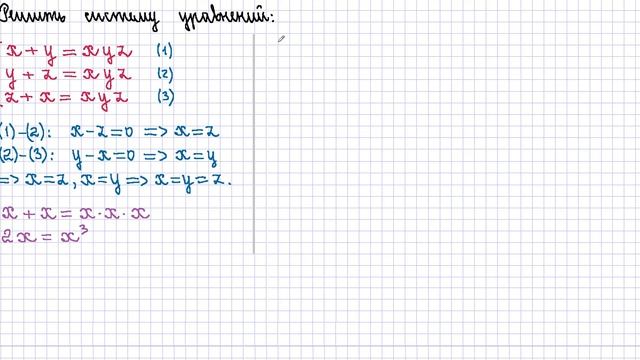 Решить систему уравнений:
x + y = x y z (1)
y + z = x y z (2)
z + x = x y z (3)
(1)-(2): x-z=0 => x=z
(2)-(3): y-x=0 => x=y
=> x=z, x=y => x=y=z.
x + x = x·x·x
2x = x³